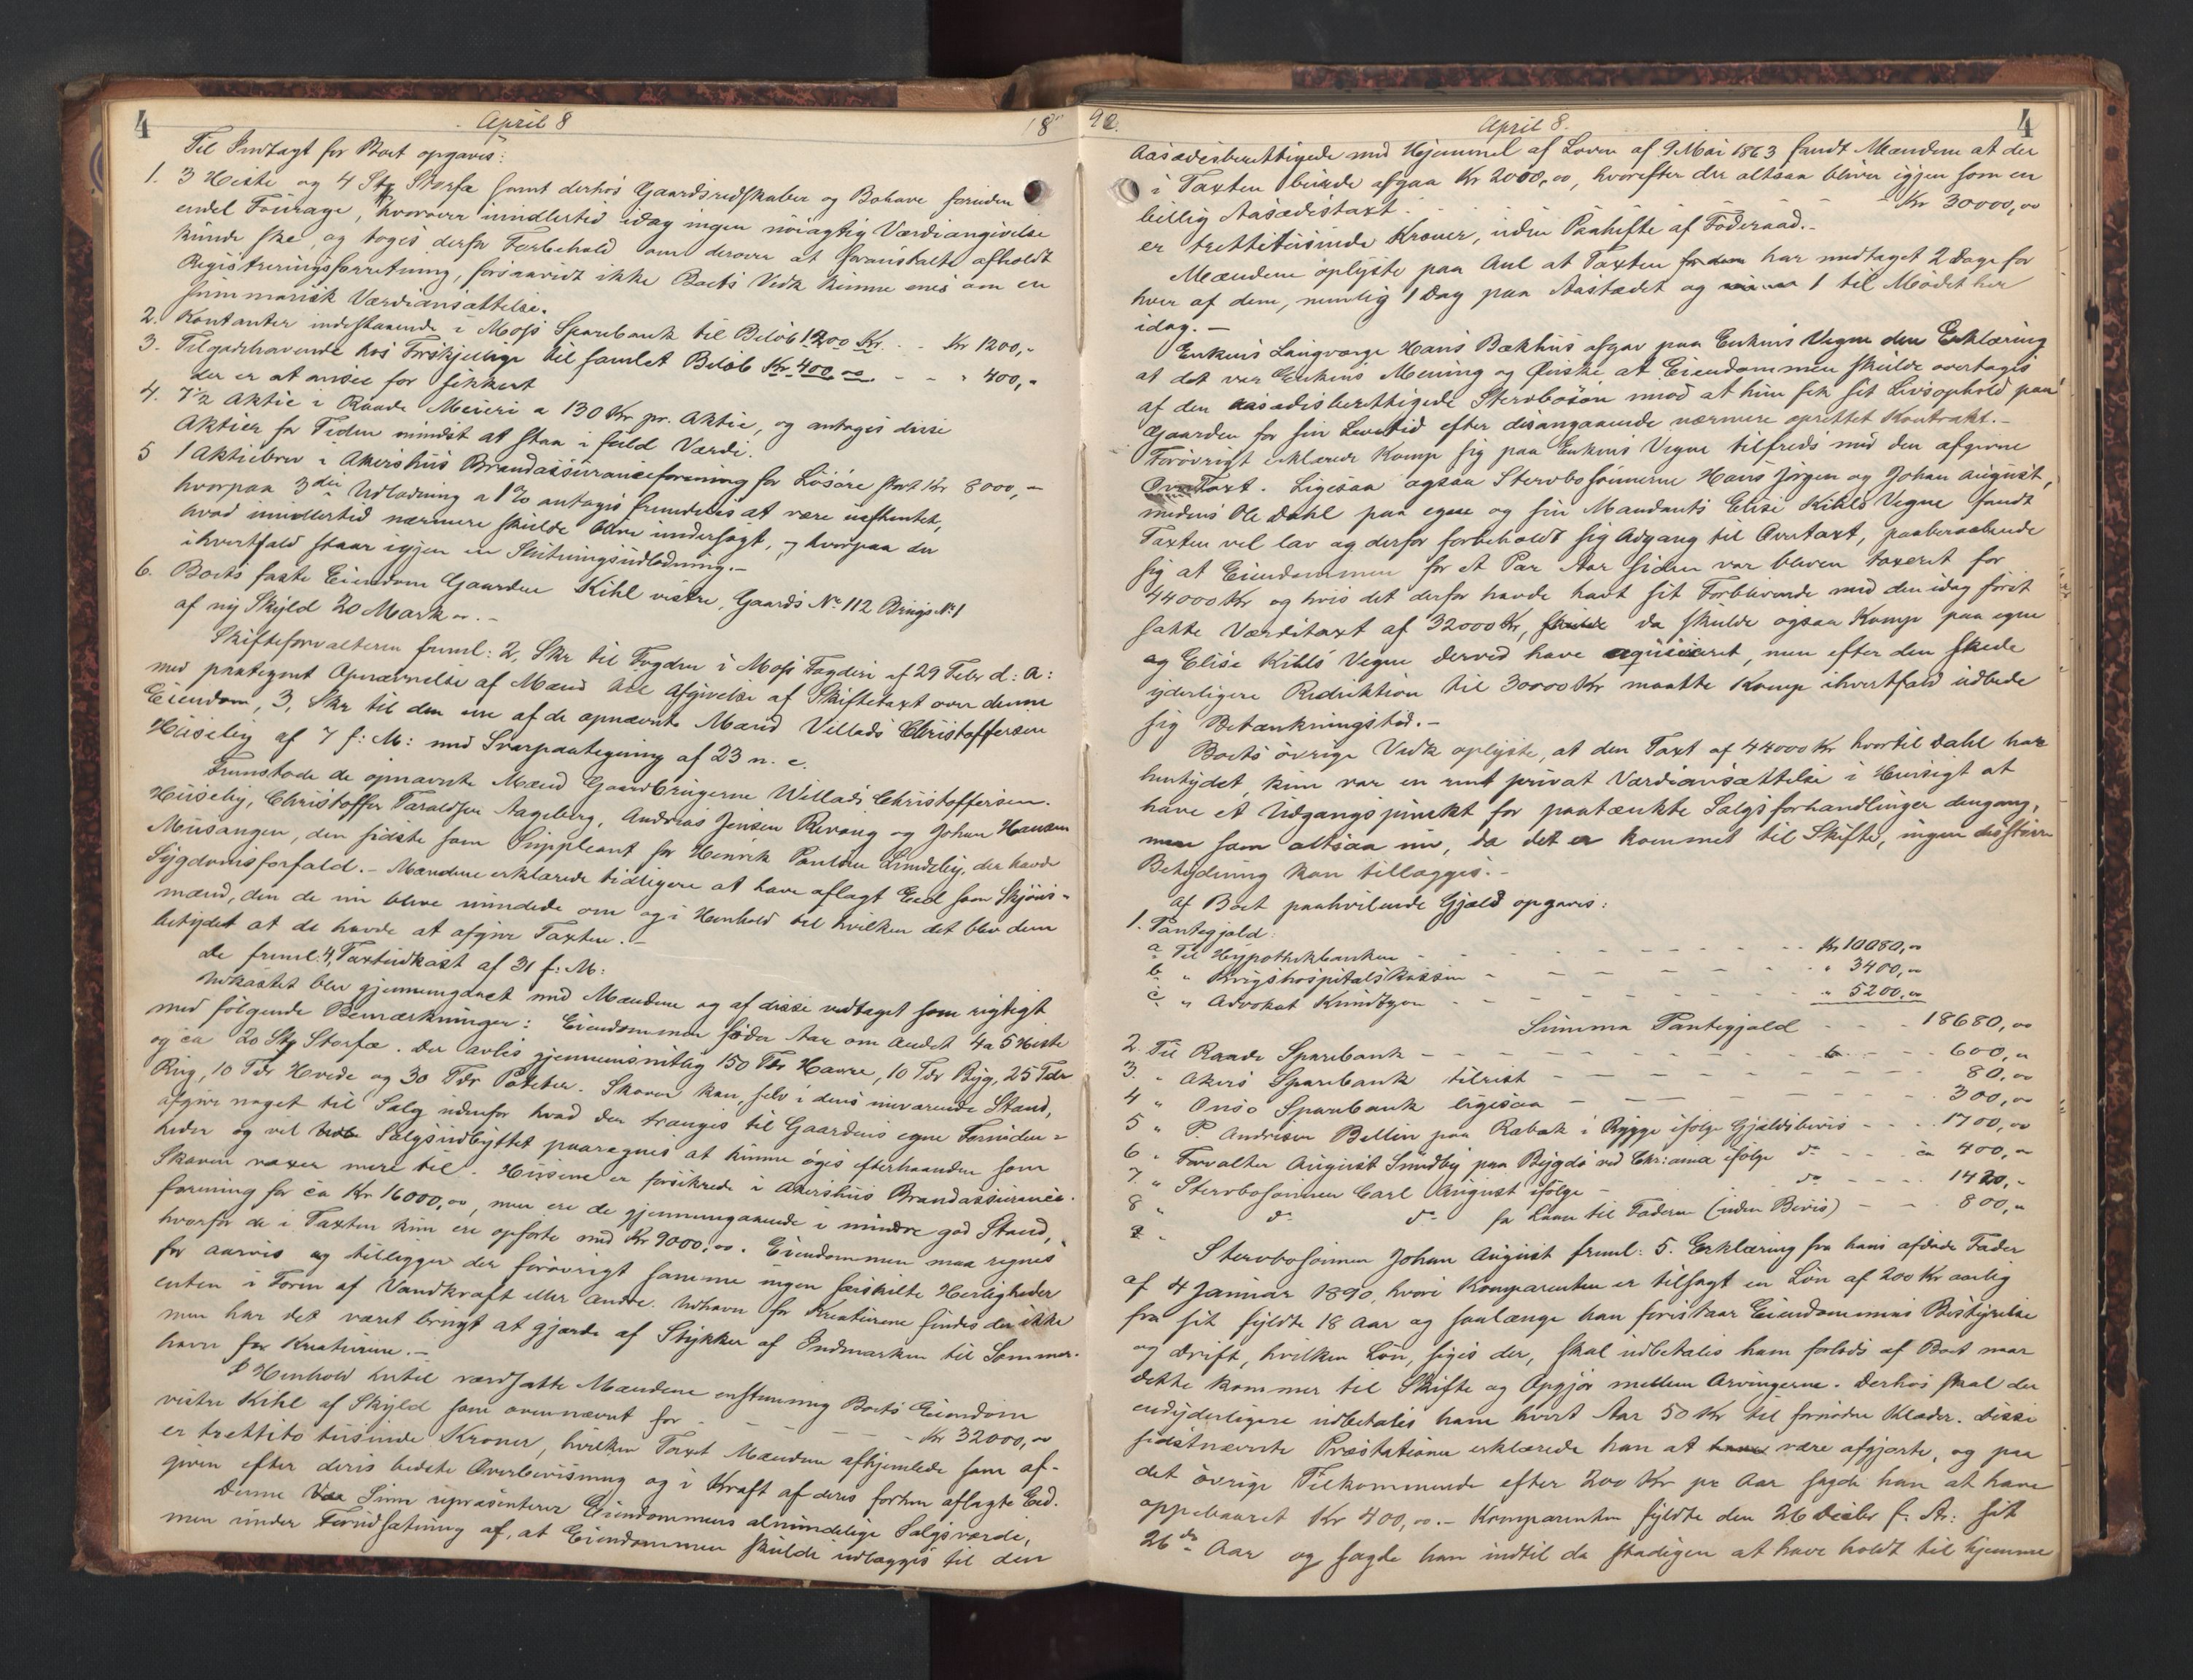 4
April 8
18
Til Indtægt for Boet opgaves:
1. 3 Heste og 4 Stkr Storfæ samt derhos Gaardsredskaber og Bohave foruden
endel Fourage, hvorover imidlertid idag ingen nöiagtig Værdiangivelse
kunde ske, og toges derfor Forbehold om derover at foranstalte afholdt
Registreringsforretning, forsaavidt ikke Boets Vedk kunne enes om en
summarisk Værdiansættelse.
2. Kontanter indestaaende i Moss Sparebank til Belöb 1200 Kr. - - Kr 1200,"
3. Tilgodehavende hos Forskjellige til samlet Belöb Kr 400,00 - - " 400,"
der er at ansee for sikkert
4. 7½ Aktie i Raade Meieri a 130 Kr pr. Aktie, og antoges disse
Aktier for Tiden mindst at staa i fuld Værdi.
5 1 Aktiebrev i Akershus Brandassuranceforening for Lösöre stort Kr 8000,"
hvorpaa 3die Udlodning a 1% antoges fremdeles at være uafhentet,
hvad imidlertid nærmere skulde blive undersögt, og hvorpaa der
ihvertfald staar igjen en Slutningsudlodning.-
6. Boets faste Eiendom Gaarden Kihl vestre, Gaards No 112 Brugs No 1
af ny Skyld 20 Mark ".-
Skifteforvalteren freml: 2, Skr til Fogden i Moss Fogderi af 29 Febr d: A:
med paategnet Opnævnelse af Mænd til Afgivelse af Skiftetaxt over denne
Eiendom, 3, Skr til den ene af de opnævnte Mænd Villads Christoffersen
Huseby af 7 f: M: med Svarpaategning af 23 n. e.
Fremstode de opnævnte Mænd Gaardbrugerne Willads Christoffersen
Huseby, Christoffer Taraldsen Aageberg, Andreas Jensen Revoug og Johan Hansen
Musangen, den sidste som Suppleant for Henrik Paulsen Lundeby, der havde
Sygdomsforfald.- Mændene erklærede tidligere at have aflagt Eed som Skjöns-
mænd, den de nu bleve mindede om og i Henhold til hvilken det blev dem
betydet at de havde at afgive Taxten.-
De freml: 4, Taxtudkast af 31 f: M:
Udkastet blev gjennemgaaet med Mændene og af disse vedtaget som rigtigt
med fölgende Bemærkninger: Eiendommen föder Aar om Andet 4 a 5 Heste
og ca 20 Stk Storfæ. Der avles gjennemsnitlig 150 Tdr Havre, 10 Tdr Byg, 25 Tdr
Rug, 10 Tdr Hvede og 30 Tdr Poteter. Skoven kan, selv i dens nuværende Stand,
afgive noget til Salg udenfor hvad der trænges til Gaardens egne Fornöden-
heder og vel Salgsudbyttet paaregnes at kunne öges efterhaanden som
Skoven voxer mere til. Husene er forsikrede i Akershus Brandassurance-
forening for ca Kr 16000,00, men ere de gjennemgaaende i mindre god Stand,
hvorfor de i Taxten kun ere opförte med Kr 9000,00. Eiendommen maa regnes
for aarvis og tilligger der forövrigt samme ingen særskilte Herligheder
enten i Form af Vandkraft eller Andre. Udhavn for Kreaturene findes der ikke
men har det været brugt at gjærde af Stykker af Indmarken til Sommer-
havn for Kreaturene.-
I Henhold hertil værdsatte Mændene enstemmig Boets Eiendom
vestre Kihl af Skyld som ovennævnt for - - - - Kr 32000,00
er trettito tusinde Kroner, hvilken Taxt Mændene afhjemlede som af-
given efter deres bedste Overbevisning og i Kraft af deres forhen aflagte Eed.
Denne Sum repræsenterer Eiendommens almindelige Salgsværdi,
men under Forudsætning af, at Eiendommen skulde udlægges til den
92.
April 8.
4
Aasædesberettigede med Hjemmel af Loven af 9 Mai 1863 fandt Mændene at der
i Taxten burde afgaa Kr 2000,00, hvorefter der altsaa bliver igjen som en
billig Aasædestaxt - - - - Kr 30000,00
er trettitusinde Kroner, uden Paahefte af Föderaad.-
Mændene oplyste paa Anl at Taxten har medtaget 2 Dage for
hver af dem, nemlig 1 Dag paa Aastedet og 1 til Mödet her
idag.-
Enkens Laugværge Hans Bækhus afgav paa Enkens Vegne den Erklæring
at det var Enkens Mening og Önske, at Eiendommen skulde overtages
af den aasædesberettigede Stervbosön imod at hun fik sit Livsophold paa
Gaarden for sin Levetid efter desangaaende nærmere oprettet Kontrakt.-
Forövrigt erklærede Komp sig paa Enkens Vegne tilfreds med den afgivne
Taxt. Ligesaa ogsaa Stervbosönnerne Hans Jörgen og Johan August,
medens Ole Dahl paa egne og sin Mandants Elise Kihls Vegne fandt
Taxten vel lav og derfor forbeholdt sig Adgang til Overtaxt, paaberaabende
sig at Eiendommen for et Par Aar siden var bleven taxeret for
44000 Kr og hvis det derfor havde havt sit Forblivende med den idag först
satte Værditaxt af 32000 Kr, da skulde ogsaa Komp paa egne
og Elise Kihls Vegne derved have acquiesceret, men efter den skede
yderligere Reduktion til 30000 Kr maatte Komp ihvertfald udbede
sig Betænkningstid.-
Boets övrige Vedk oplyste, at den Taxt af 44000 Kr hvortil Dahl har
hentydet, kun var en rent privat Værdiansættelse i Hensigt at
have et Udgangspunkt for paatænkte Salgsforhandlinger dengang,
men som altsaa nu, da det er kommet til Skifte, ingen desstörre
Betydning kan tillægges.-
Af Boet paahvilende Gjæld opgaves:
1. Pantegjæld:
a. Til Hypothekbanken - - - - Kr 10080,00
b. " Krigshospitalskassen - - - - " 3400,00
c. " Advokat Knudtzon - - - - " 5200,00
Summa Pantegjæld - - - 18680,00
2. Til Raade Sparebank - - - - 600,"
3. " Akers Sparebank tilrest - - - - 80,00
4 " Onsö Sparebank ligesaa - - - - 300,00
5 " P. Andresen Bellin paa Rabæk i Rygge ifölge Gjældsbevis - - - 1700,00
6 " Forvalter August Smedby paa Bygdö ved Chr:ania ifölge do - - ca 400,"
7. " Stervbosönnen Carl August ifölge - do - - - 1420,"
8 " do do for Laan til Faderen (uden Bevis) - - 800,"
9 "
Stervbosönnen Johan August freml: 5. Erklæring fra hans afdöde Fader
af 4 Januar 1890, hvori Komparenten er tilsagt en Lön af 200 Kr aarlig
fra sit fyldte 18 Aar og saalænge han forestaar Eiendommens Bestyrelse
og Drift, hvilken Lön, siges der, skal udbetales ham forlods af Boet naar
dette kommer til Skifte og Opgjör mellem Arvingerne. Derhos skal der
endyderligere udbetales ham hvert Aar 50 Kr til fornödne Klæder. Disse
sidstnævnte Præstationer erklærede han at være afgjorte, og paa
det övrige Tilkommende efter 200 Kr pr Aar sagde han at have
oppebaaret Kr 400,00.- Komparenten fyldte den 26 Decbr f. Ar: sit
26de Aar og sagde han indtil da stadigen at have holdt til hjemme